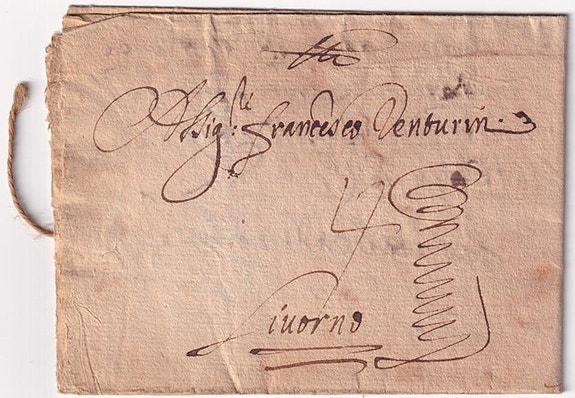 Al Sig.re Francesco Venturini
Livorno